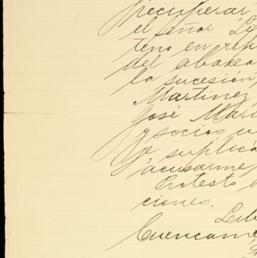 recuperar
el señor
teno en rep
del abaco
la sucesión
Martinez
José Mari
y socios u
ya suplica
acusarme
Protesto
ciones.
Cuencame